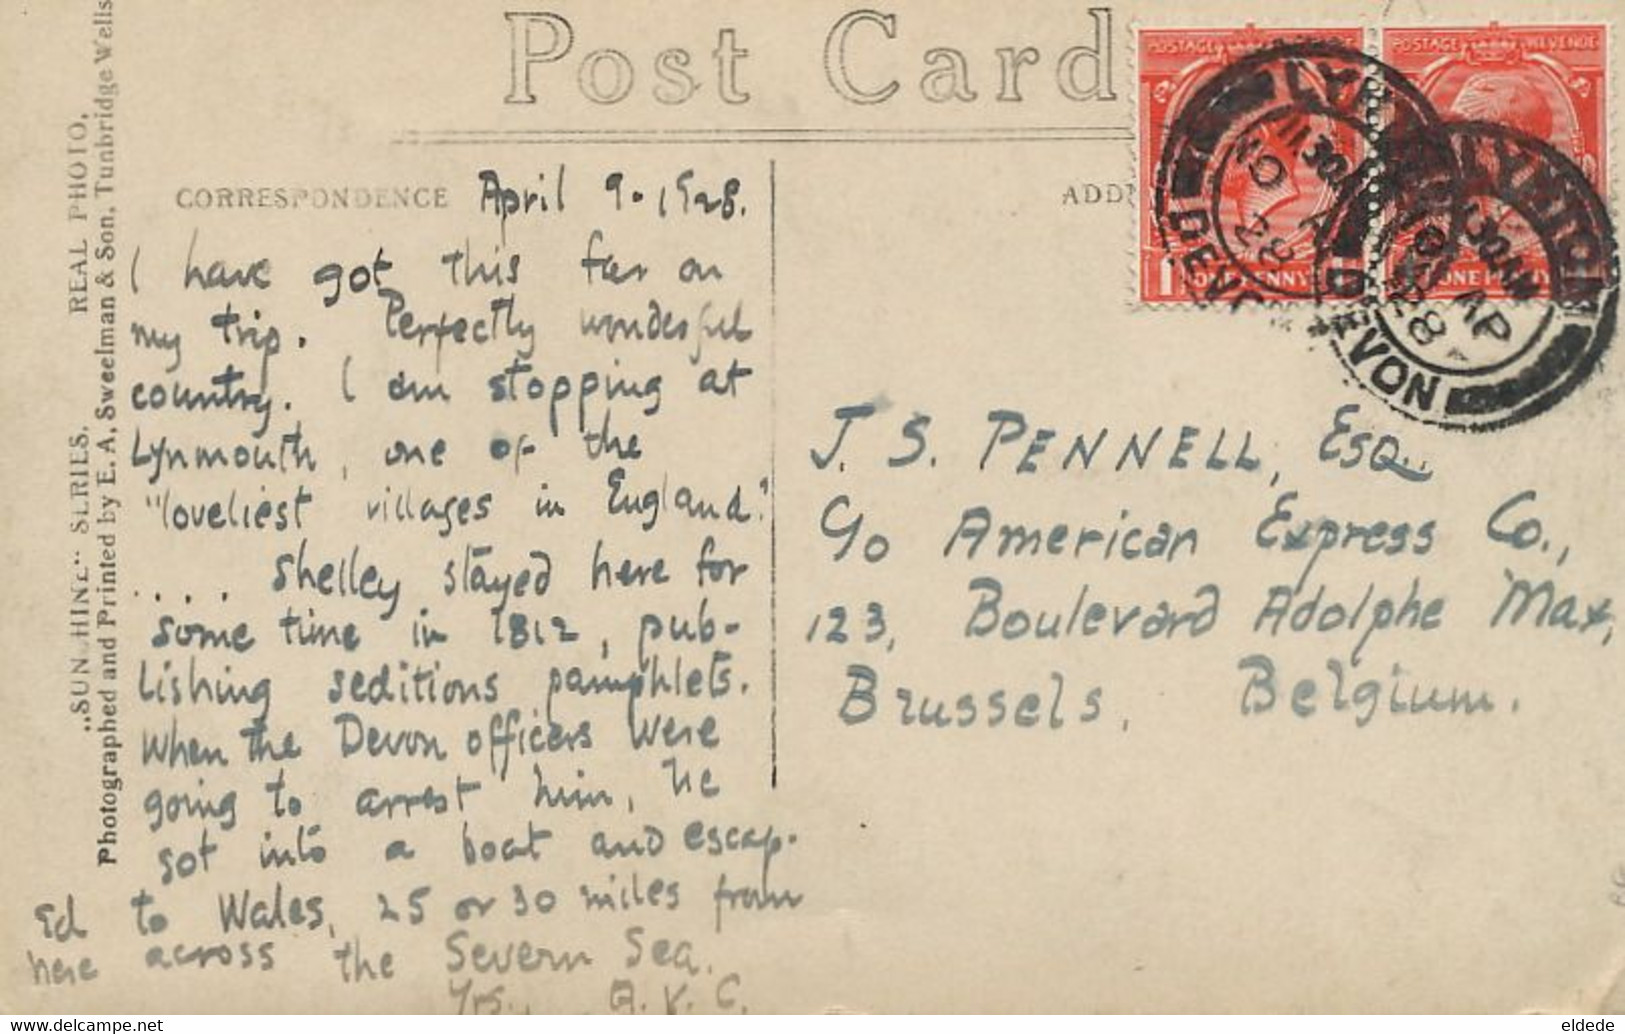 Post Card
CORRESPONDENCE
April 9. 1928.
I have got this far on
my trip. Perfectly wonderful
country. I am stopping at
Lynmouth, one of the
"loveliest villages in England."
.... Shelley stayed here for
some time in 1812, pub-
lishing seditions pamphlets.
When the Devon officers were
going to arrest him, he
got into a boat and escap-
ed to Wales, 25 or 30 miles from
here across the Severn Sea.
Yrs., A. K. C.
J. S. PENNELL, ESQ.,
c/o American Express Co.,
123, Boulevard Adolphe Max,
Brussels, Belgium.
„SUNSHINE" SERIES. REAL PHOTO.
Photographed and Printed by E. A. Sweetman & Son, Tunbridge Wells
POSTAGE REVENUE
ONE PENNY
POSTAGE REVENUE
ONE PENNY
LYNTON
11.30AM
9 AP
28
DEVON
LYNTON
11.30AM
9 AP
28
DEVON
eldede